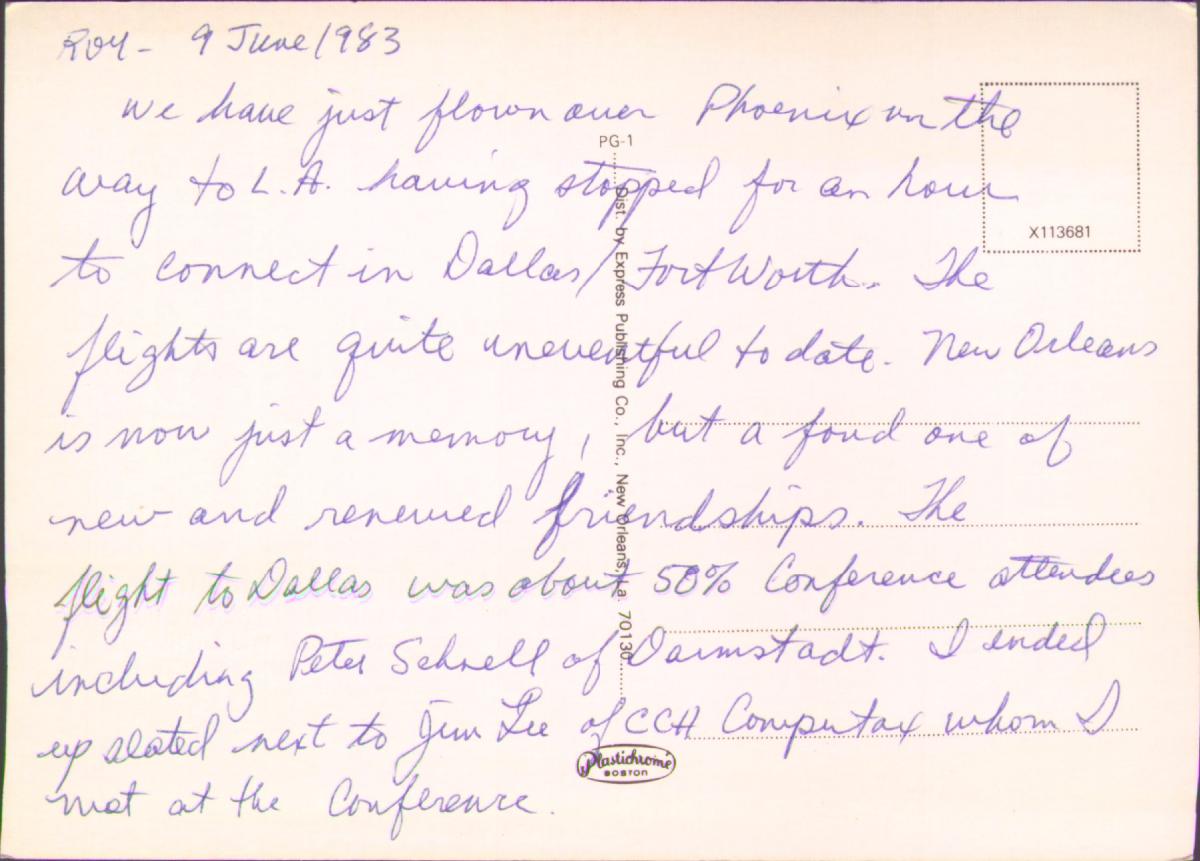 ROY - 9 June 1983
We have just flown over Phoenix on the
way to L.A. having stopped for an hour
to connect in Dallas/Fort Worth. The
flights are quite uneventful to date. New Orleans
is now just a memory, but a fond one of
new and renewed friendships. The
flight to Dallas was about 50% Conference attendees
including Peter Schnell of Darmstadt. I ended
up seated next to Jim Lee of CCH Computax whom I
met at the Conference.
PG-1
Dist. by Express Publishing Co., Inc., New Orleans, La. 70130
X113681
Plastichrome
BOSTON